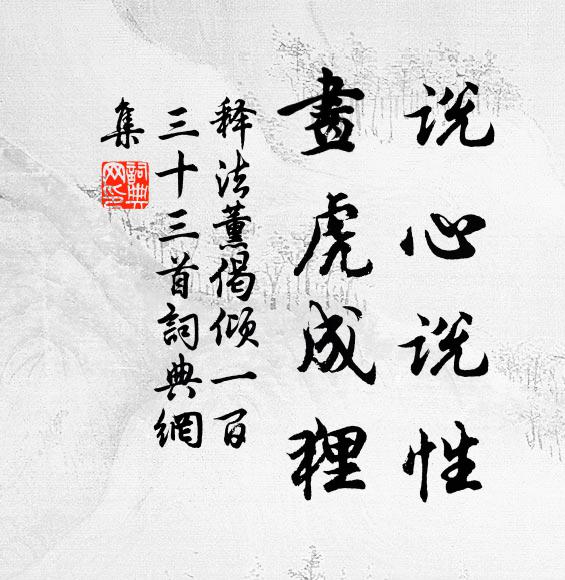 说心说性
畫虎成狸
释法薰偈倾一百
三十三首詞典網
集
詞典
网印